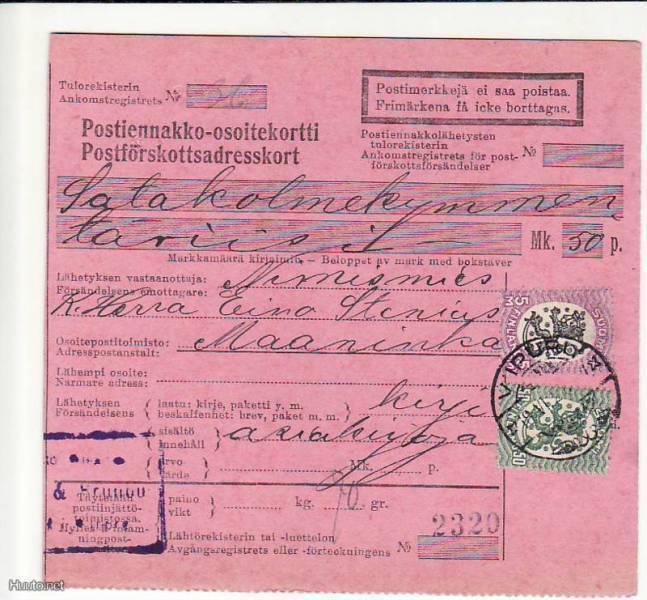 Tulorekisterin
Ankomstregistrets №
Postimerkkejä ei saa poistaa.
Frimärkena få icke borttagas.
Postiennakko-osoitekortti
Postförskottsadresskort
Postiennakkolähetysten
tulorekisterin
Ankomstregistrets för post- №
förskottsförsändelser
Satakolmekymmen
Mk. 50 p.
Markkamäärä kirjaimin – Beloppet av mark med bokstäver
Lähetyksen vastaanottaja: Nimismies
Försändelsens emottagare:
K. Herra Eino Stenius
Osoitepostitoimisto: Maaninka
Adresspostanstalt:
Lähempi osoite:
Närmare adress:
Lähetyksen laatu: kirje, paketti y. m. kirje
Försändelsens beskaffenhet: brev, paket m. m.
sisältö asiakirjoja
innehåll
arvo Mk. p.
värde
Täytetään
postiinjättö-
toimistossa.
paino kg. 70 gr.
vikt
Lähtörekisterin tai -luettelon
Avgångsregistrets eller -förteckningens № 2320
5
FINLAND
30
Huuto.net